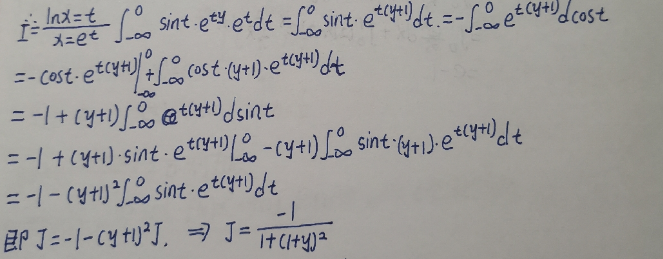 ∴ I = (lnx=t / x=e^t) ∫_{-∞}^{0} sint·e^{ty}·e^t dt = ∫_{-∞}^{0} sint·e^{t(y+1)} dt. = -∫_{-∞}^{0} e^{t(y+1)} dcost
= -cost·e^{t(y+1)}|_{-∞}^{0} + ∫_{-∞}^{0} cost·(y+1)·e^{t(y+1)} dt
= -1 + (y+1)∫_{-∞}^{0} e^{t(y+1)} dsint
= -1 + (y+1)·sint·e^{t(y+1)}|_{-∞}^{0} - (y+1)∫_{-∞}^{0} sint·(y+1)·e^{t(y+1)} dt
= -1 - (y+1)²∫_{-∞}^{0} sint·e^{t(y+1)} dt
即 J = -1 - (y+1)²J. ⇒ J = -1 / (1+(1+y)²)